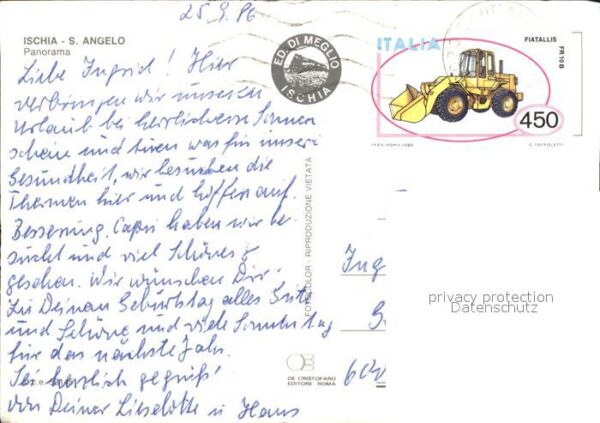 25.9.86
ISCHIA - S. ANGELO
Panorama
Liebe Ingrid! Hier
verbringen wir unseren
Urlaub bei herrlichem Sonnen
schein und tuen was für unsere
Gesundheit, wir besuchen die
Thermen hier und hoffen auf
Besserung. Capri haben wir be
sucht und viel Schönes
gesehen. Wir wünschen Dir
zu Deinem Geburtstag alles Gute
und Schöne und viele Sonnentag
für das nächste Jahr.
Sei herzlich gegrüßt
von Deiner Liselotte u Hans
ED. DI MEGLIO
ISCHIA
ITALIA
FIATALLIS
FR 10B
450
I.P.Z.S.-ROMA-1986
RIPRODUZIONE VIETATA
Ing
privacy protection
Datenschutz
DE CRISTOFARO
EDITORE ROMA